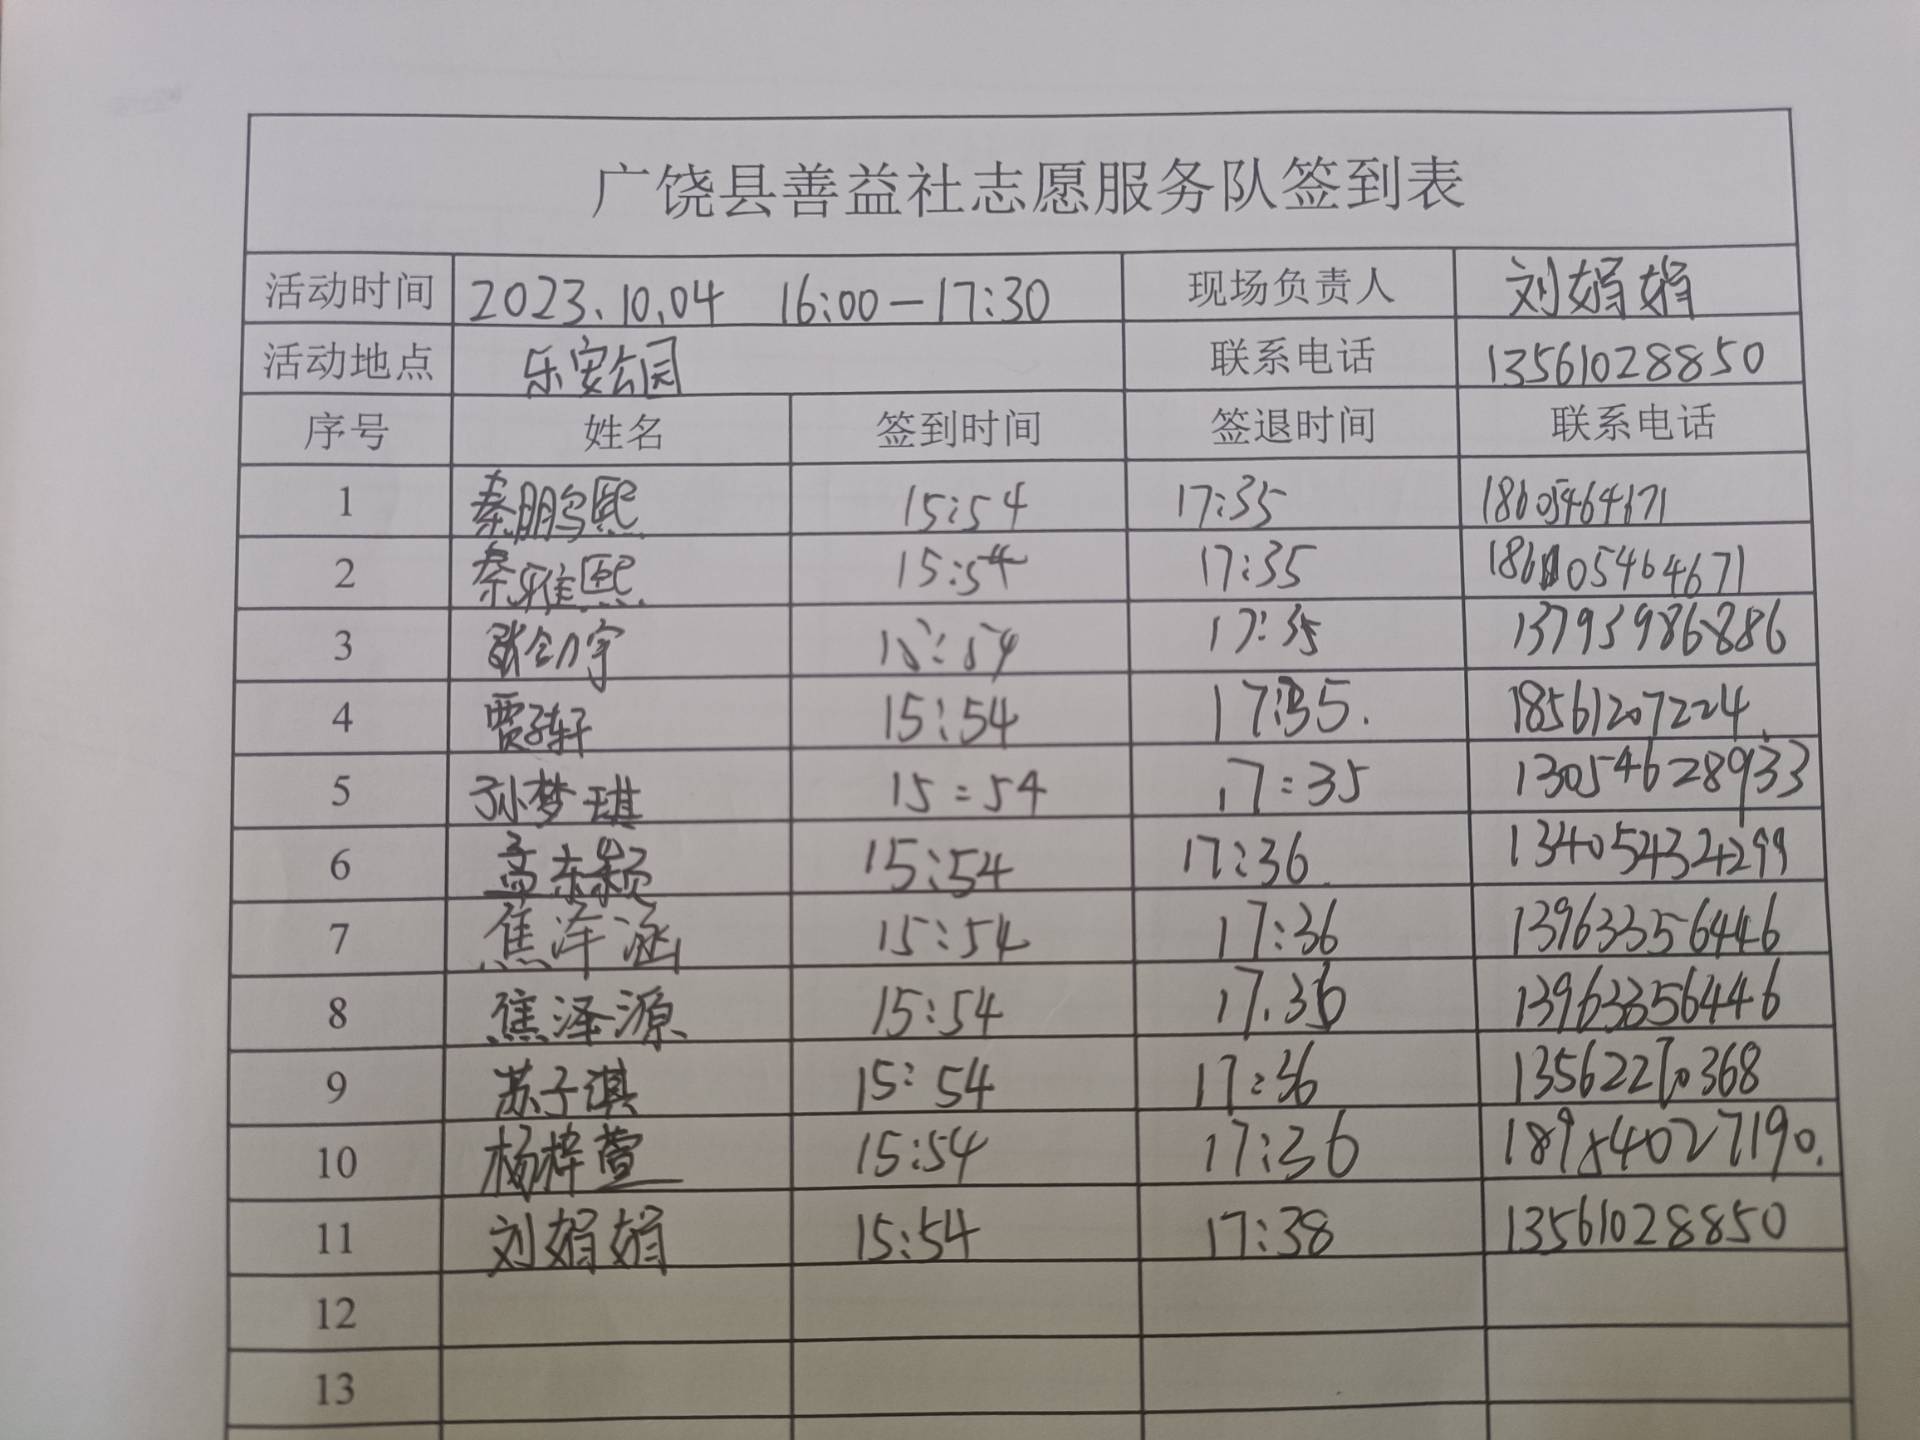 广饶县善益社志愿服务队签到表
活动时间 2023.10.04 16:00-17:30 现场负责人 刘娟娟
活动地点 乐安公园 联系电话 13561028850
序号 姓名 签到时间 签退时间 联系电话
1 秦鹏熙 15:54 17:35
2 秦雅熙 15:54 17:35 18605464671
3 15:54 17:35 13793986886
4 贾子轩 15:54 17:35. 18561207224
5 孙梦琪 15:54 17:35 13054628933
6 孟东颖 15:54 17:36 13405432299
7 焦泽涵 15:54 17:36 13963356446
8 焦泽源 15:54 17.36 13963356446
9 苏子淇 15:54 17:36 13562270368
10 杨梓萱 15:54 17:36 18954027190.
11 刘娟娟 15:54 17:38 13561028850
12
13